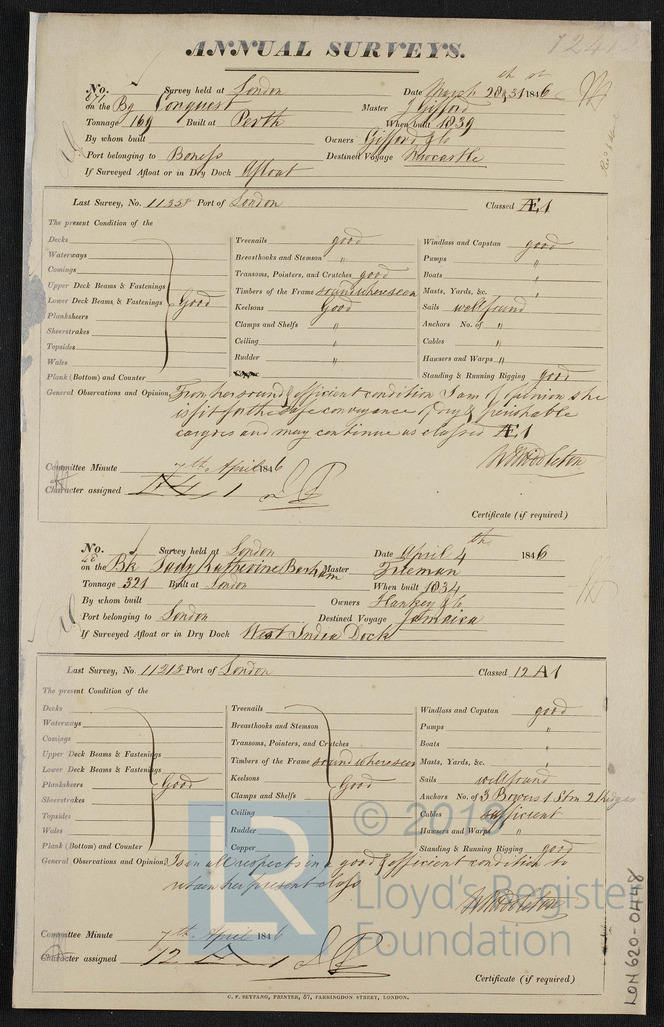 ANNUAL SURVEYS.
No. Survey held at London Date March 28th & 31st 1846
on the Bg Conquest Master J Gifford
Tonnage 169 Built at Perth When built 1839
By whom built Owners Gifford & Co
Port belonging to Boness Destined Voyage Newcastle
If Surveyed Afloat or in Dry Dock Afloat
Last Survey, No. 11358 Port of London Classed Æ1
The present Condition of the
Decks
Waterways
Comings
Upper Deck Beams & Fastenings
Lower Deck Beams & Fastenings Good
Planksheers
Sheerstrakes
Topsides
Wales
Plank (Bottom) and Counter
Treenails good
Breasthooks and Stemson "
Transoms, Pointers, and Crutches good
Timbers of the Frame sound where seen
Keelsons Good
Clamps and Shelfs "
Ceiling "
Rudder "
Windlass and Capstan good
Pumps "
Boats "
Masts, Yards, &c. "
Sails well found
Anchors No. of "
Cables "
Hawsers and Warps "
Standing & Running Rigging good
General Observations and Opinion From her sound & efficient condition I am of opinion she
is fit for the safe conveyance of dry & perishable
cargoes and may continue as classed Æ1
W Middleton
Committee Minute 7th April 1846
Character assigned Æ 1
Certificate (if required)
No. Survey held at London Date April 4th 1846
on the Bk Lady Katherine Barham Master Freeman
Tonnage 321 Built at London When built 1834
By whom built Owners Hankey & Co
Port belonging to London Destined Voyage Jamaica
If Surveyed Afloat or in Dry Dock West India Dock
Last Survey, No. 11213 Port of London Classed 12 A1
The present Condition of the
Decks
Waterways
Comings
Upper Deck Beams & Fastenings
Lower Deck Beams & Fastenings
Planksheers Good
Sheerstrakes
Topsides
Wales
Plank (Bottom) and Counter
Treenails
Breasthooks and Stemson
Transoms, Pointers, and Crutches
Timbers of the Frame sound where seen
Keelsons Good
Clamps and Shelfs
Ceiling
Rudder
Copper
Windlass and Capstan good
Pumps "
Boats "
Masts, Yards, &c. "
Sails well found
Anchors No. of 3 Bowers 1 Strm 2 Kedges
Cables sufficient
Hawsers and Warps "
Standing & Running Rigging good
General Observations and Opinion Is in all respects in a good & efficient condition to
retain her present class
W Middleton
Committee Minute 7th April 1846
Character assigned 12 A 1
Certificate (if required)
C. F. SEYFANG, PRINTER, 57, FARRINGDON STREET, LONDON.
LR © 2019
Lloyd's Register
Foundation
LON 620-0448